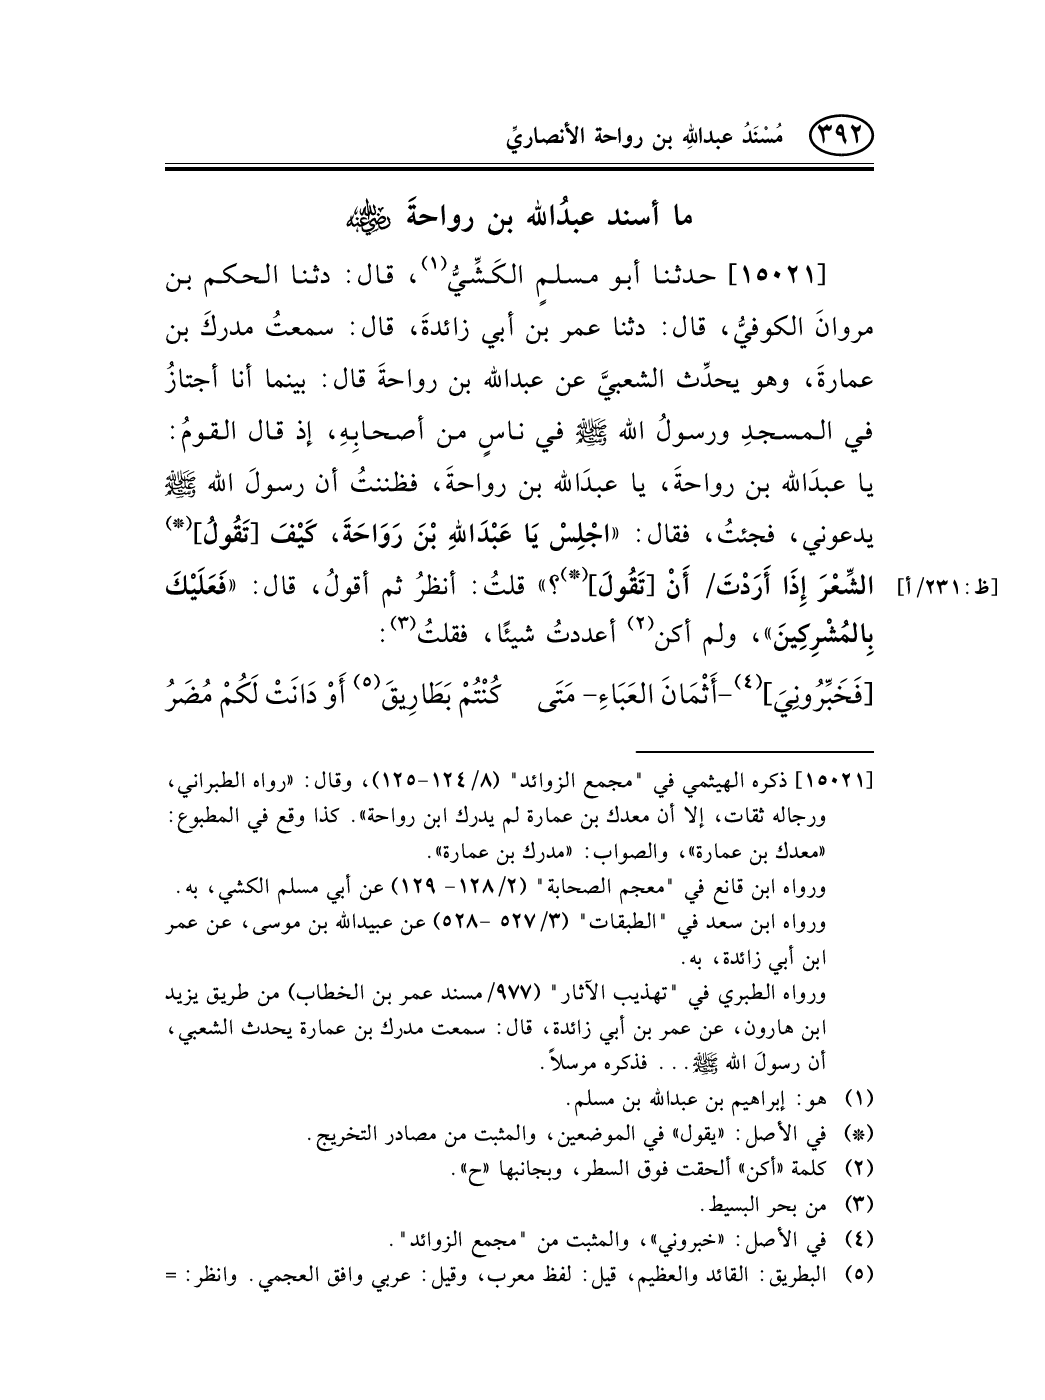 ٣٩٢ مُسْنَدُ عبداللهِ بن رواحة الأنصاريِّ
ما أسند عبدُالله بن رواحةَ ﵁
[١٥٠٢١] حدثنا أبو مسلمٍ الكَشِّيُّ(١)، قال: دثنا الحكم بن
مروانَ الكوفيُّ، قال: دثنا عمر بن أبي زائدةَ، قال: سمعتُ مدركَ بن
عمارةَ، وهو يحدِّث الشعبيَّ عن عبدالله بن رواحةَ قال: بينما أنا أجتازُ
في المسجدِ ورسولُ الله ﷺ في ناسٍ من أصحابِهِ، إذ قال القومُ:
يا عبدَالله بن رواحةَ، يا عبدَالله بن رواحةَ، فظننتُ أن رسولَ الله ﷺ
يدعوني، فجئتُ، فقال: «اجْلِسْ يَا عَبْدَاللهِ بْنَ رَوَاحَةَ، كَيْفَ [تَقُولُ](*)
الشِّعْرَ إِذَا أَرَدْتَ/ أَنْ [تَقُولَ](*)؟» قلتُ: أنظرُ ثم أقولُ، قال: «فَعَلَيْكَ
[ظ: ٢٣١/أ]
بِالمُشْرِكِينَ»، ولم أكن(٢) أعددتُ شيئًا، فقلتُ(٣):
[فَخَبِّرُونِيَ](٤)-أَثْمَانَ العَبَاءِ- مَتَى كُنْتُمْ بَطَارِيقَ(٥) أَوْ دَانَتْ لَكُمْ مُضَرُ
[١٥٠٢١] ذكره الهيثمي في "مجمع الزوائد" (٨/ ١٢٤-١٢٥)، وقال: «رواه الطبراني،
ورجاله ثقات، إلا أن معدك بن عمارة لم يدرك ابن رواحة». كذا وقع في المطبوع:
«معدك بن عمارة»، والصواب: «مدرك بن عمارة».
ورواه ابن قانع في "معجم الصحابة" (٢/ ١٢٨- ١٢٩) عن أبي مسلم الكشي، به.
ورواه ابن سعد في "الطبقات" (٣/ ٥٢٧ -٥٢٨) عن عبيدالله بن موسى، عن عمر
ابن أبي زائدة، به.
ورواه الطبري في "تهذيب الآثار" (٩٧٧/ مسند عمر بن الخطاب) من طريق يزيد
ابن هارون، عن عمر بن أبي زائدة، قال: سمعت مدرك بن عمارة يحدث الشعبي،
أن رسولَ الله ﷺ... فذكره مرسلاً.
(١) هو: إبراهيم بن عبدالله بن مسلم.
(*) في الأصل: «يقول» في الموضعين، والمثبت من مصادر التخريج.
(٢) كلمة «أكن» ألحقت فوق السطر، وبجانبها «ح».
(٣) من بحر البسيط.
(٤) في الأصل: «خبروني»، والمثبت من "مجمع الزوائد".
(٥) البطريق: القائد والعظيم، قيل: لفظ معرب، وقيل: عربي وافق العجمي. وانظر: =